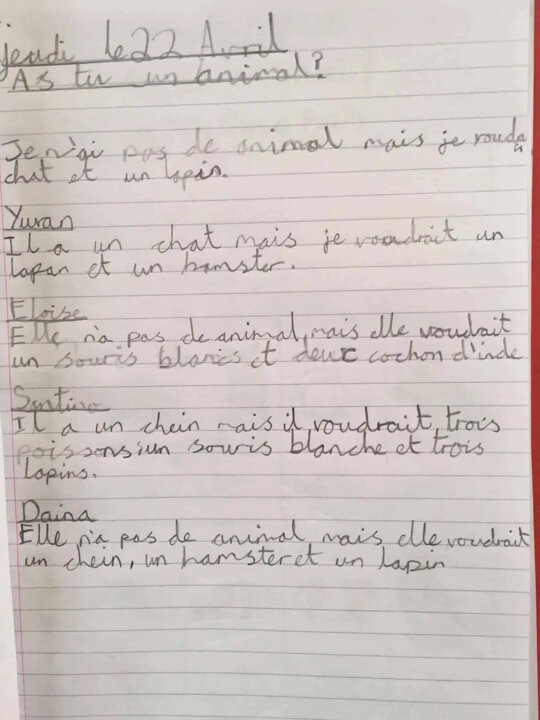 jeudi le 22 Avril
As tu un animal?
Je n'ai pas de animal mais je voudais
chat et un lapin.
Yuvan
Il a un chat mais je voudrait un
lapan et un hamster.
Eloise
Elle n'a pas de animal, mais elle voudrait
un souris blancs et deux cochon d'inde
Santino
Il a un chein mais il voudrait, trois
poissons, un souris blanche et trois
lapins.
Daina
Elle n'a pas de animal, mais elle voudrait
un chein, un hamster et un lapin